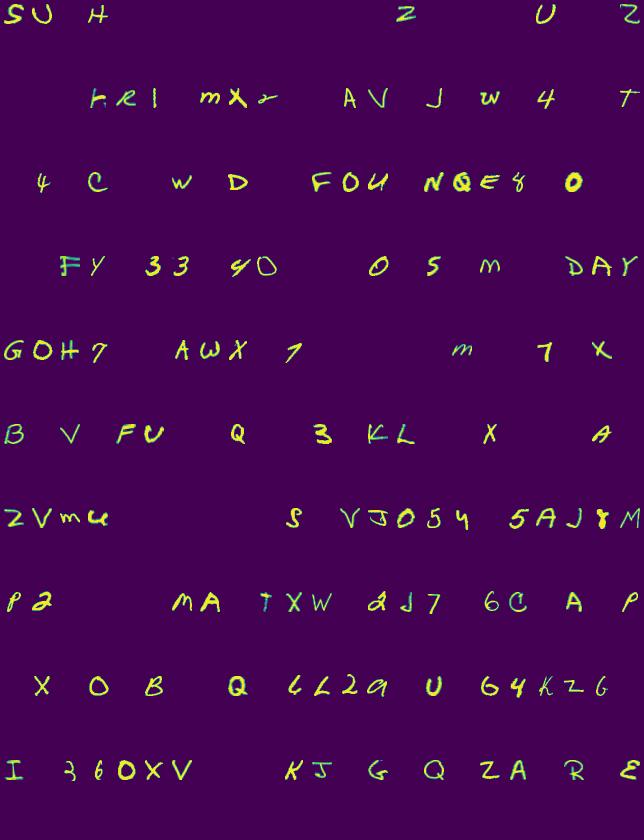 SU H Z U Z
KRI MX2 AV J W 4 T
4 C W D FOU NQE8 0
FY 33 40 0 5 M DAY
GOH7 AWX 1 M 7 X
B V FU Q 3 KL X A
ZVMU S VJ054 5AJ8M
P2 MA TXW 2J7 6C A P
X O B Q 6L2A U G4KZG
I 360XV KJ G Q ZA R E